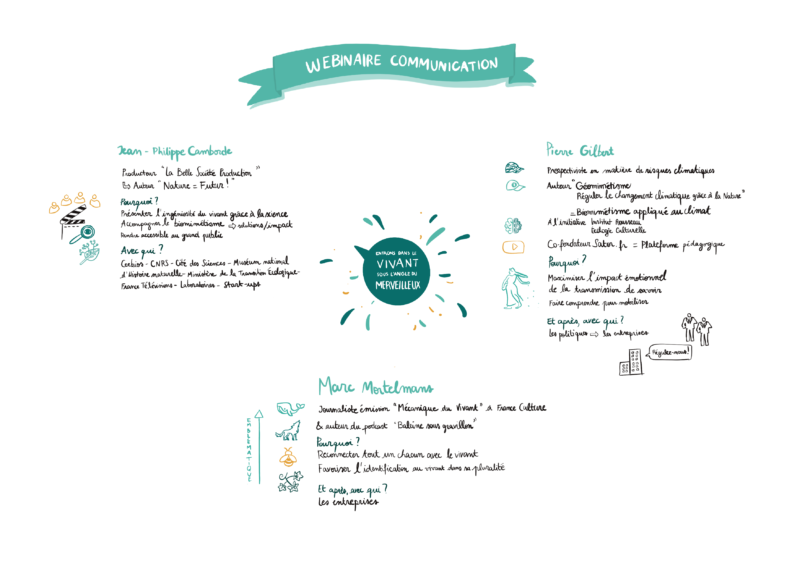 WEBINAIRE COMMUNICATION
Jean-Philippe Camborde
Producteur "La Belle Société Production"
↳ Auteur "Nature = Futur !"
Pourquoi ?
Présenter l'ingéniosité du vivant grâce à la science
Accompagner le biomimétisme ⇒ solutions/impact
Rendre accessible au grand public
Avec qui ?
Ceebios - CNRS - Cité des Sciences - Muséum national
d'Histoire naturelle - Ministère de la Transition Ecologique -
France Télévisions - Laboratoires - Start-ups
ENTRONS DANS LE
VIVANT
SOUS L'ANGLE DU
MERVEILLEUX
Pierre Gilbert
Prospectiviste en matière de risques climatiques
Auteur "Géomimétisme
Réguler le changement climatique grâce à la Nature"
= Biomimétisme appliqué au climat
A l'initiative Institut Rousseau
Ecologie Culturelle
Co-fondateur Sator.fr = Plateforme pédagogique
Pourquoi ?
Maximiser l'impact émotionnel
de la transmission de savoir
Faire comprendre pour mobiliser
Et après, avec qui ?
les politiques ⇒ les entreprises
Régulez-nous !
Marc Mortelmans
Journaliste émission "Mécanique du Vivant" à France Culture
& auteur du podcast "Baleine sous gravillon"
Pourquoi ?
Reconnecter tout un chacun avec le vivant
Favoriser l'identification au vivant dans sa pluralité
Et après, avec qui ?
Les entreprises